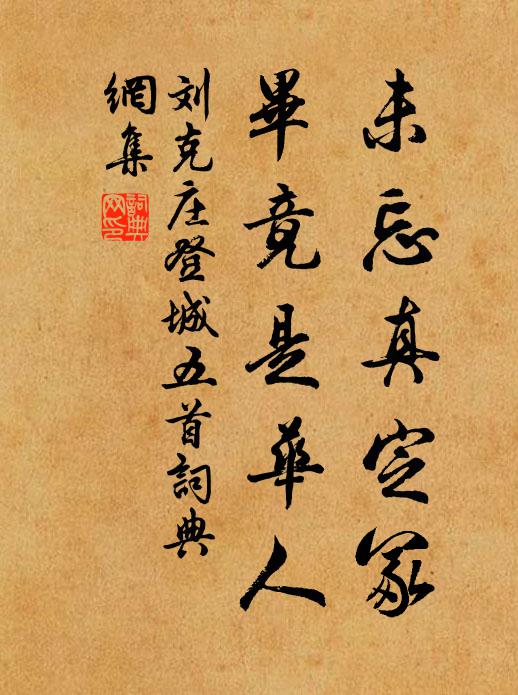 未忘真定冢
畢竟是華人
刘克庄登城五首詞典
網集
詞典网印